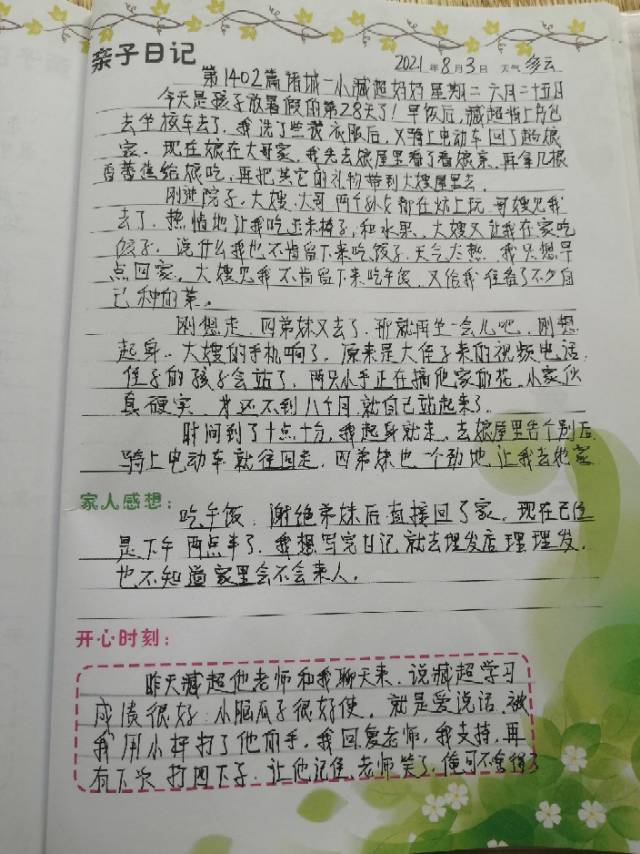 亲子日记
2021年8月3日 天气 多云
第1402篇 诸城一小臧超妈妈 星期二 六月二十五日
今天是孩子放暑假的第28天了！早饭后，臧超背上书包
去坐校车去了，我洗了些衣服后，又骑上电动车回了趟娘
家。现在娘在大哥家，我先去娘屋里看了看娘亲，再拿几根
香蕉送给娘吃，再把其它的礼物带到大嫂屋里去。
刚进院子，大嫂、大哥、两个孙女都在炕上玩，哥嫂见我
去了，热情地让我吃玉米棒子，和水果，大嫂又让我在家吃
饺子，说什么我也不肯留下来吃饺子，天气太热，我只想早
点回家。大嫂见我不肯留下来吃午饭，又给我准备了不少自
己种的菜。
刚想走，四弟妹又去了，那就再坐一会儿吧，刚想
起身，大嫂的手机响了，原来是大侄子来的视频电话，
侄子的孩子会站了，两只小手正在搞他家的花，小家伙
真硬实，才还不到八个月，就自己站起来了。
时间到了十点十分，我起身就走，去娘屋里告个别后，
骑上电动车就往回走，四弟妹也一个劲地让我去她家
家人感想：
吃午饭，谢绝弟妹后直接回了家，现在已经
是下午两点半了，我想写完日记就去理发店理理发，
也不知道家里会不会来人。
开心时刻：
昨天臧超他老师和我聊天来，说臧超学习
成绩很好，小脑瓜子很好使，就是爱说话，被
我用小秆打了他的手，我回复老师，我支持，再
有下次打四下子，让他记住，老师笑了，俺可不舍得